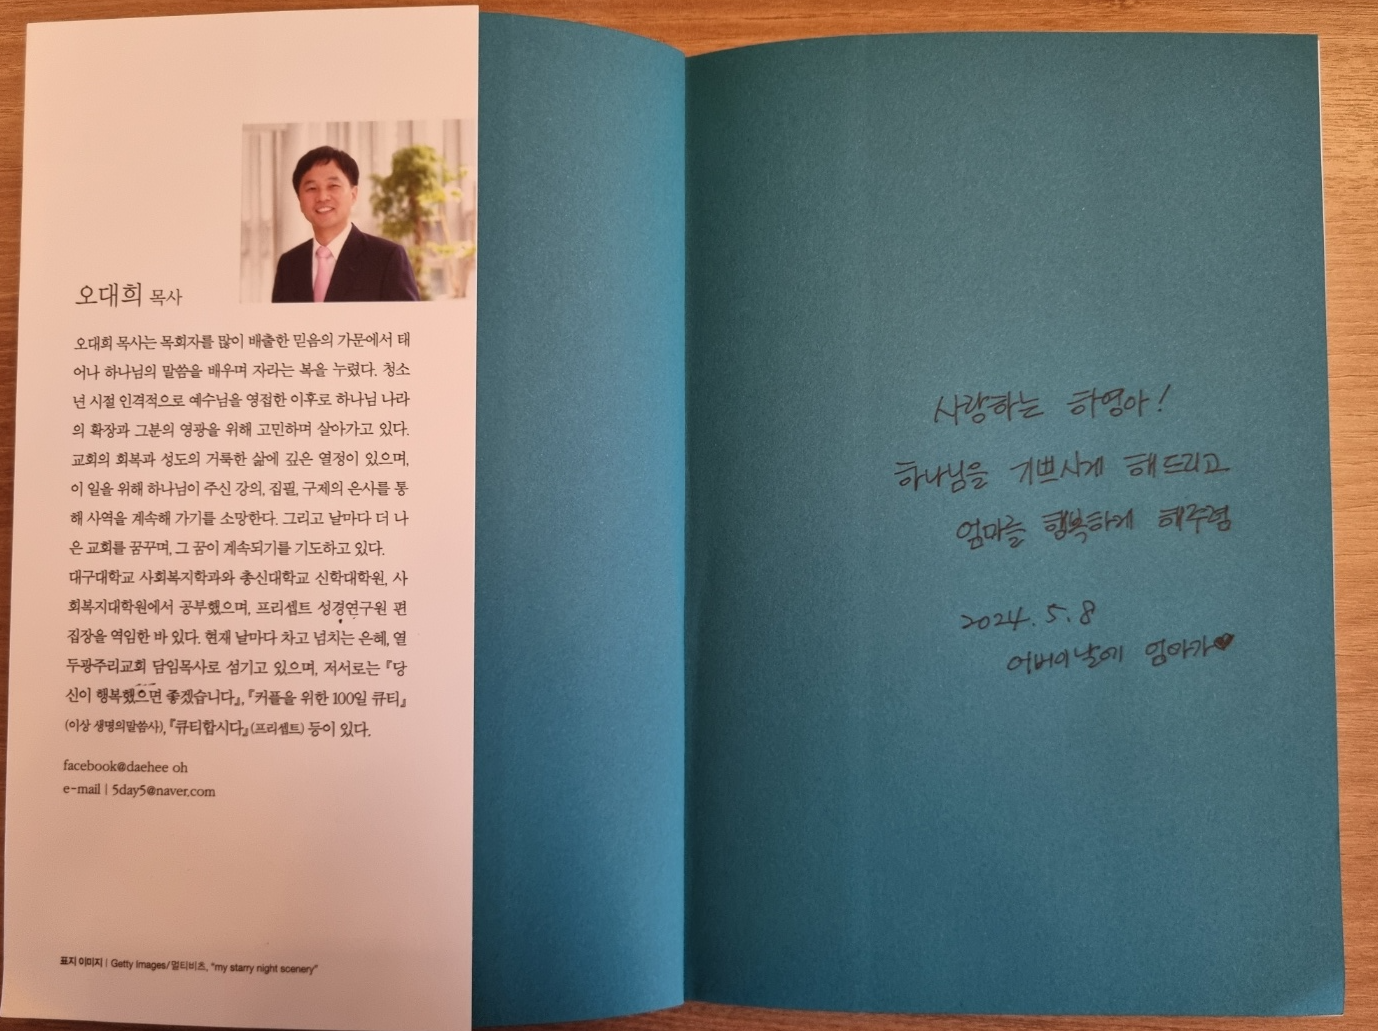 오대희 목사
오대희 목사는 목회자를 많이 배출한 믿음의 가문에서 태
어나 하나님의 말씀을 배우며 자라는 복을 누렸다. 청소
년 시절 인격적으로 예수님을 영접한 이후로 하나님 나라
의 확장과 그분의 영광을 위해 고민하며 살아가고 있다.
교회의 회복과 성도의 거룩한 삶에 깊은 열정이 있으며,
이 일을 위해 하나님이 주신 강의, 집필, 구제의 은사를 통
해 사역을 계속해 가기를 소망한다. 그리고 날마다 더 나
은 교회를 꿈꾸며, 그 꿈이 계속되기를 기도하고 있다.
대구대학교 사회복지학과와 총신대학교 신학대학원, 사
회복지대학원에서 공부했으며, 프리셉트 성경연구원 편
집장을 역임한 바 있다. 현재 날마다 차고 넘치는 은혜, 열
두광주리교회 담임목사로 섬기고 있으며, 저서로는 『당
신이 행복했으면 좋겠습니다』, 『커플을 위한 100일 큐티』
(이상 생명의말씀사), 『큐티합시다』(프리셉트) 등이 있다.
facebook@daehee oh
e-mail | 5day5@naver.com
표지 이미지 | Getty Images/멀티비츠, "my starry night scenery"
사랑하는 하영아!
하나님을 기쁘시게 해드리고
엄마를 행복하게 해주렴
2024. 5. 8
어버이날에 엄마가♥